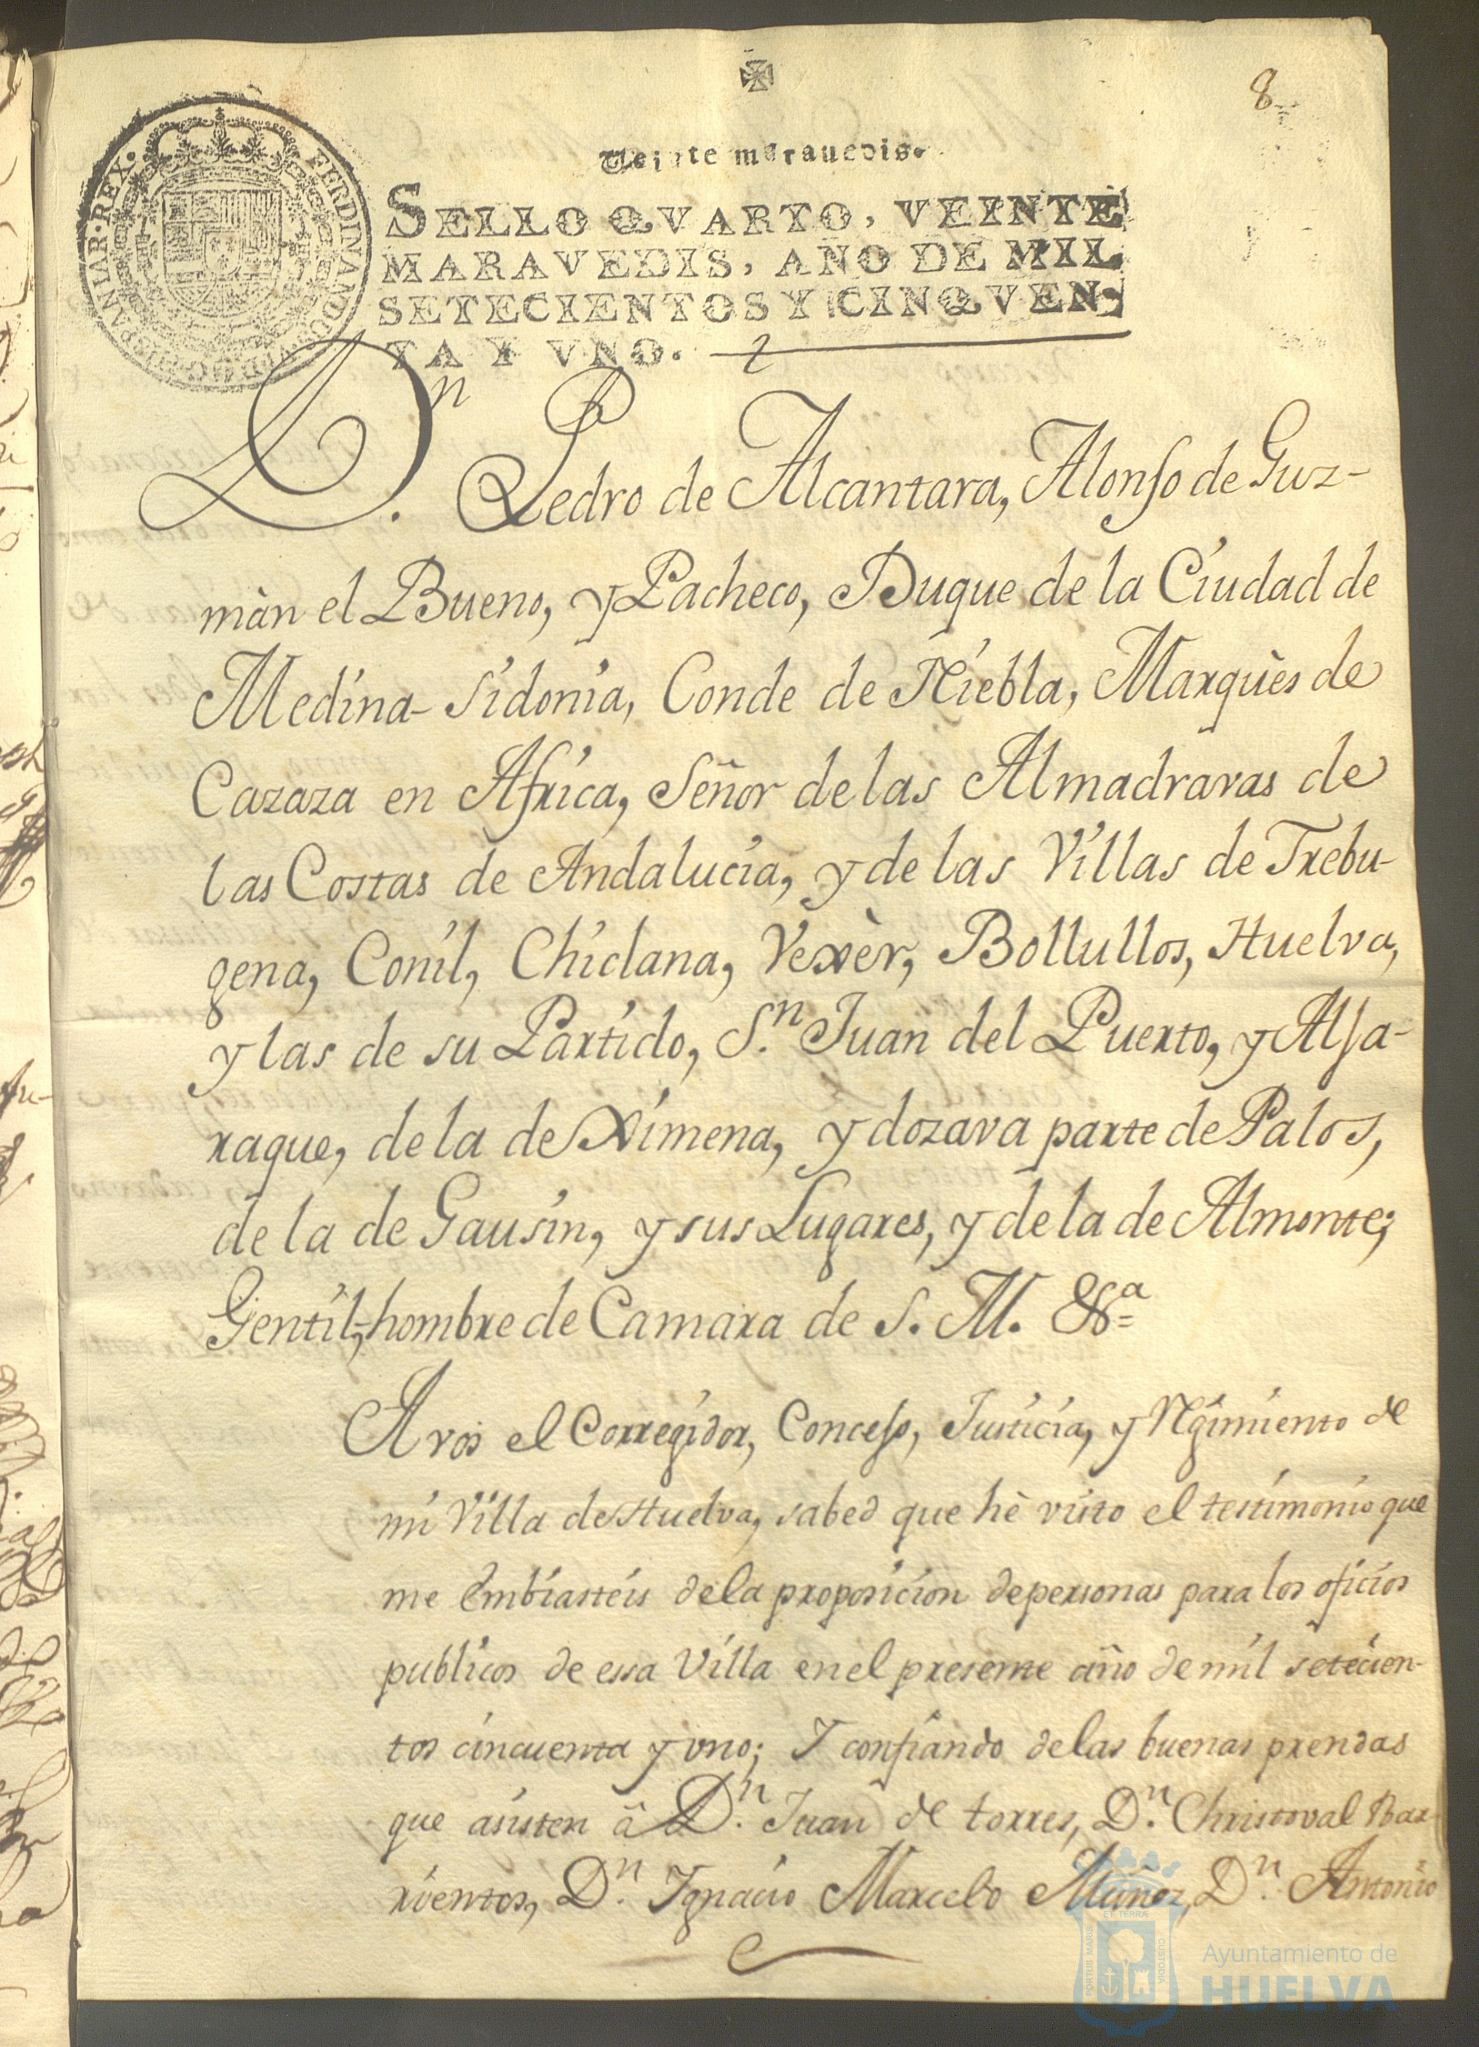 8
Veinte maravedis.
SELLO QVARTO, VEINTE
MARAVEDIS, AÑO DE MIL
SETECIENTOS Y CINQVEN
TA Y VNO.
FERDINANDUS VI D G HISPANIAR REX
D.n Pedro de Alcantara, Alonso de Guz-
màn el Bueno, y Pacheco, Duque de la Ciudad de
Medina-Sidonia, Conde de Niebla, Marquès de
Cazaza en Africa, Señor de las Almadravas de
las Costas de Andalucia, y de las Villas de Trebu-
gena, Conil, Chiclana, Vexèr, Bollullos, Huelva,
y las de su Partido, S.n Juan del Puerto, y Alja-
raque, de la de Ximena, y dozava parte de Palos,
de la de Gausin, y sus Lugares, y de la de Almonte;
Gentil-hombre de Camara de S. M. &.a
A vos el Corregidor, Concejo, Justicia, y Rgimiento de
mi Villa de Huelva, sabed que hè visto el testimonio que
me embiasteis de la proposicion de personas para los oficios
publicos de essa Villa en el presente año de mil setecien-
tos cincuenta y uno; Y confiando de las buenas prendas
que asisten â D.n Juan de torres, D.n Christoval Bar-
rientos, D.n Ignacio Marcelo Muñoz, D.n Antonio
PORTUS MARIS ET TERRÆ CUSTODIA
Ayuntamiento de
HUELVA